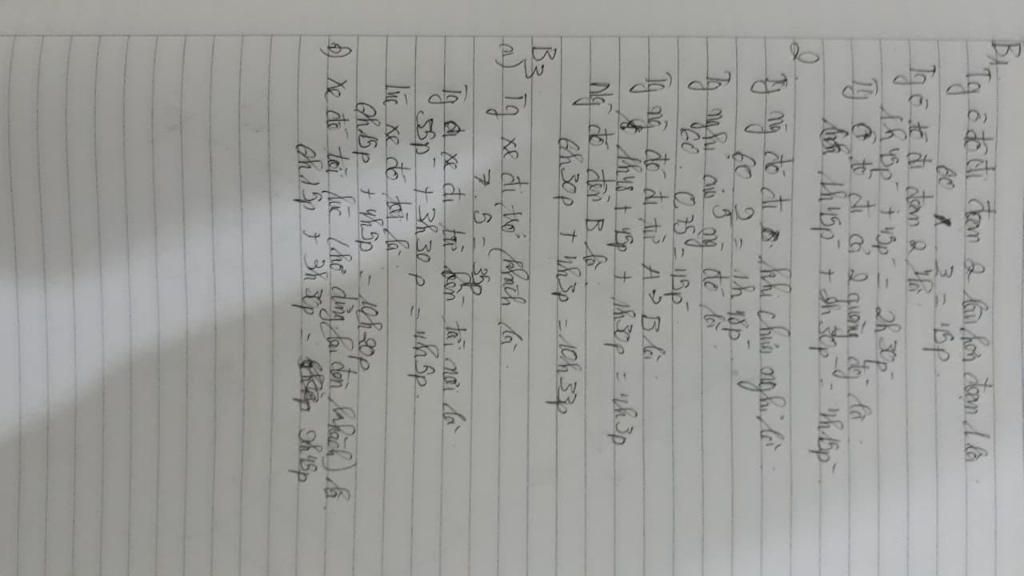 B1
Tg ô tô đi đoạn 2 lâu hơn đoạn 1 là
60 × 3/4 = 45p
Tg ô tô đi đoạn 2 là:
1h45p + 45p = 2h30p
Tg ô tô đi cả 2 quãng đg là:
1h45p + 2h30p = 4h15p
2
Tg ng đó đi khi chưa nghỉ là:
Tg nghỉ của ng đó là
60 . 0,75 = 45p
Tg ng đó đi từ A → B là:
+ 45p + 1h30p = 4h3p
Ng đó đến B là:
6h30p + 4h3p = 10h33p
B3
a) Tg xe đi (khách là:
7 . 5 = 35p
Tg xe đi tới nơi là:
35p + 3h30p = 4h5p
Lúc xe đó tới là:
6h15p + 4h5p = 10h20p
b) xe đó tới lúc (ko dừng lại đón khách) là
6h15p + 3h30p = 9h45p